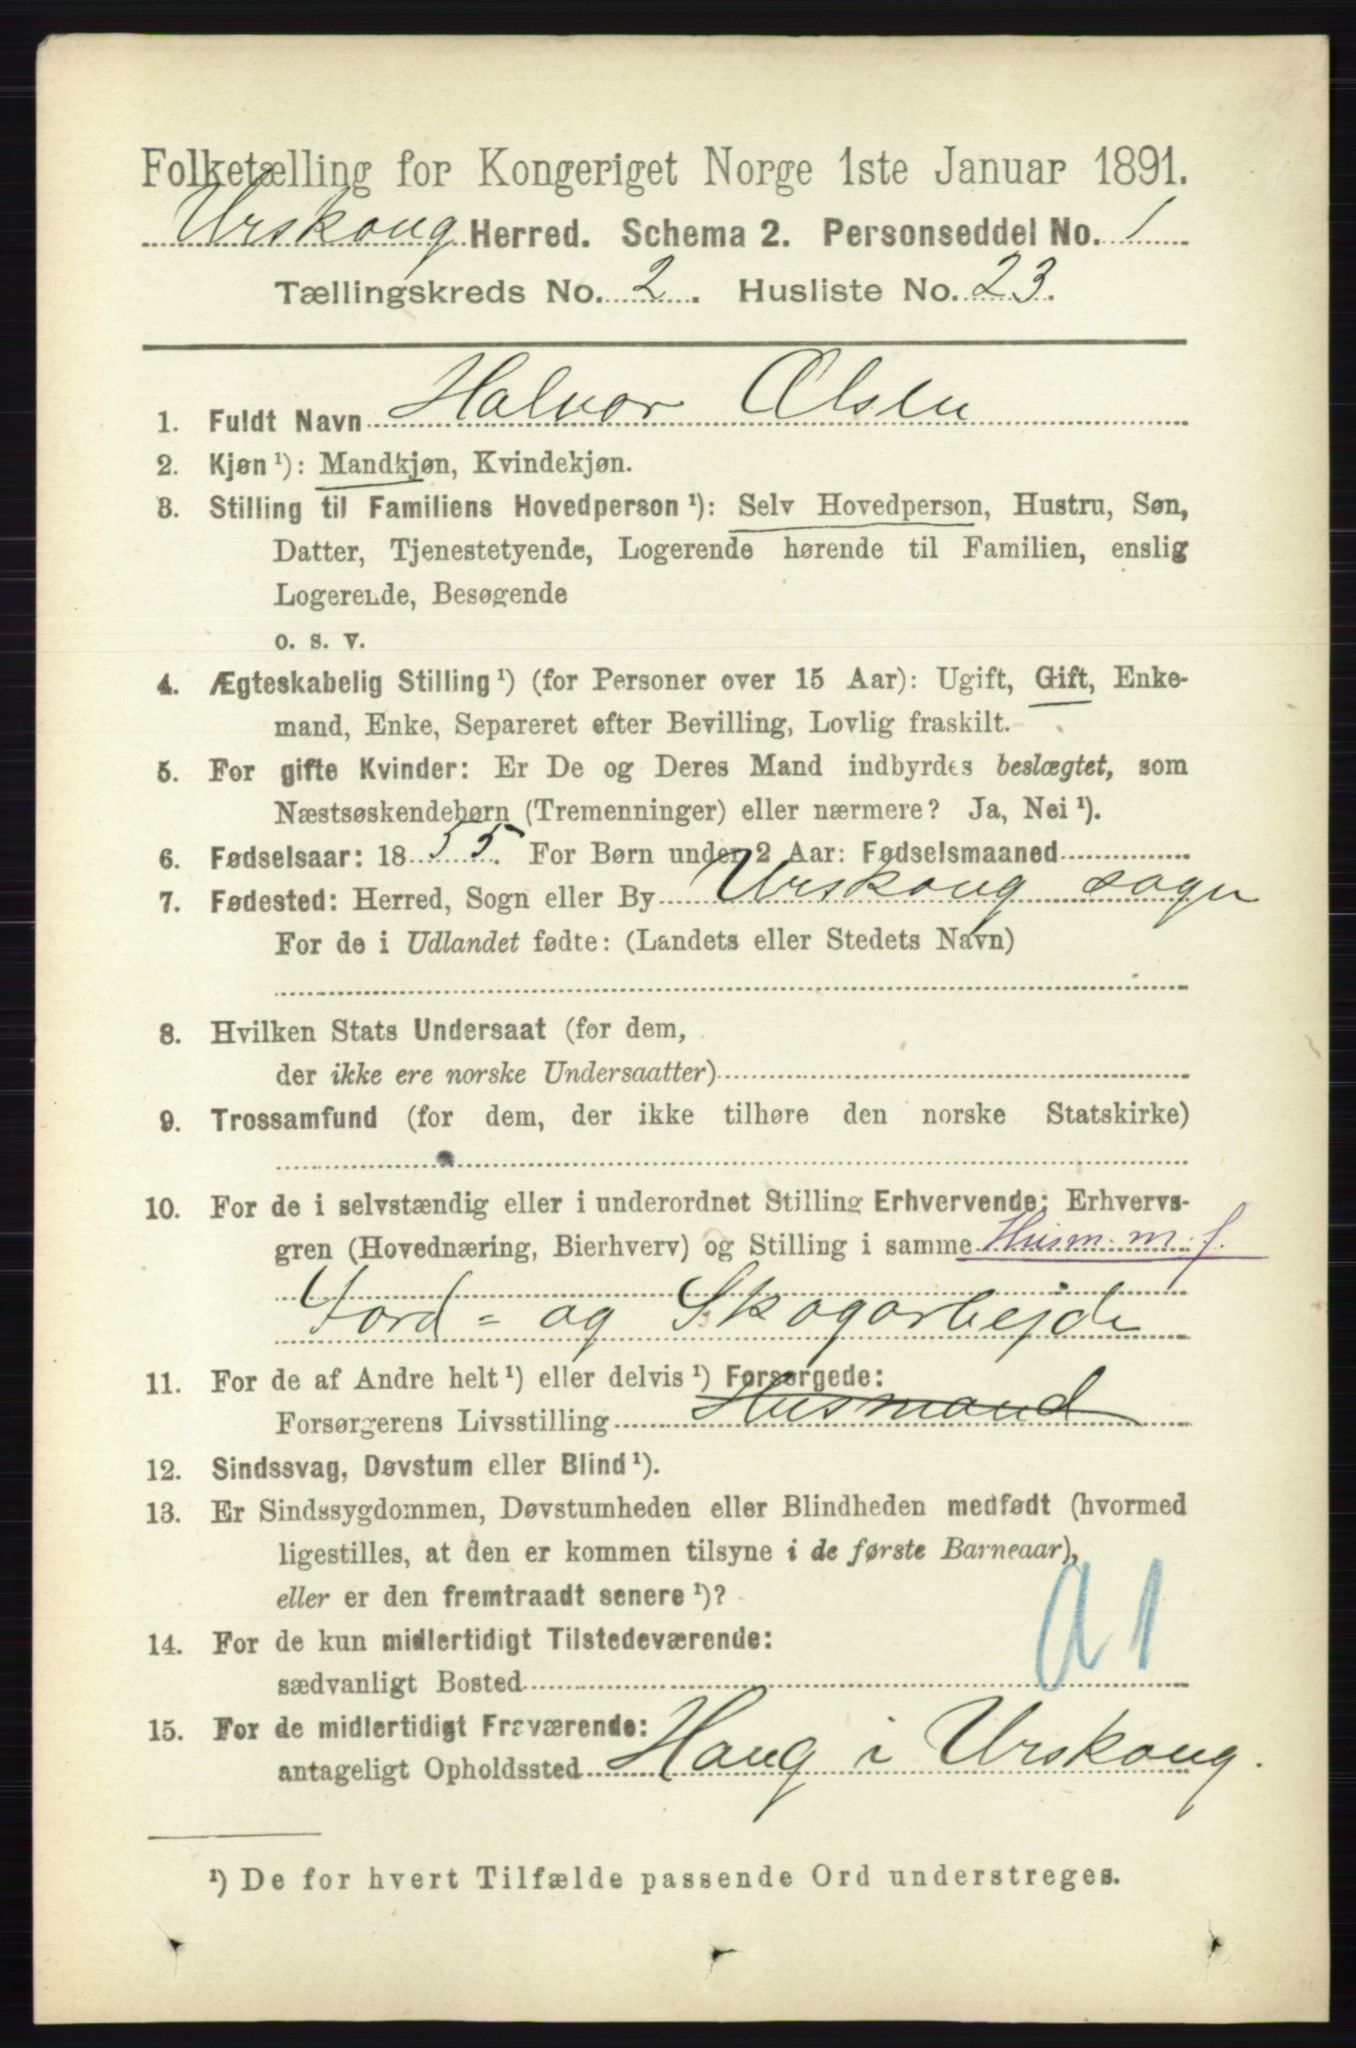 Folketælling for Kongeriget Norge 1ste Januar 1891.
Urskoug Herred. Schema 2. Personseddel No. 1
Tællingskreds No. 2. Husliste No. 23.
1. Fuldt Navn Halvor Olsen
2. Kjøn¹): Mandkjøn, Kvindekjøn.
3. Stilling til Familiens Hovedperson¹): Selv Hovedperson, Hustru, Søn,
Datter, Tjenestetyende, Logerende hørende til Familien, enslig
Logerende, Besøgende
o. s. v.
4. Ægteskabelig Stilling¹) (for Personer over 15 Aar): Ugift, Gift, Enke-
mand, Enke, Separeret efter Bevilling, Lovlig fraskilt.
5. For gifte Kvinder: Er De og Deres Mand indbyrdes beslægtet, som
Næstsøskendebørn (Tremenninger) eller nærmere? Ja, Nei¹).
6. Fødselsaar: 1855. For Børn under 2 Aar: Fødselsmaaned
7. Fødested: Herred, Sogn eller By Urskoug sogn
For de i Udlandet fødte: (Landets eller Stedets Navn)
8. Hvilken Stats Undersaat (for dem,
der ikke ere norske Undersaatter)
9. Trossamfund (for dem, der ikke tilhøre den norske Statskirke)
10. For de i selvstændig eller i underordnet Stilling Erhvervende: Erhvervs-
gren (Hovednæring, Bierhverv) og Stilling i samme Husm. m. j.
Jord- og Skogarbejde
11. For de af Andre helt¹) eller delvis¹) Forsørgede:
Forsørgerens Livsstilling Husmand
12. Sindssvag, Døvstum eller Blind¹).
13. Er Sindssygdommen, Døvstumheden eller Blindheden medfødt (hvormed
ligestilles, at den er kommen tilsyne i de første Barneaar),
eller er den fremtraadt senere¹)?
a 1
14. For de kun midlertidigt Tilstedeværende:
sædvanligt Bosted
15. For de midlertidigt Fraværende:
antageligt Opholdssted Haug i Urskoug.
¹) De for hvert Tilfælde passende Ord understreges.